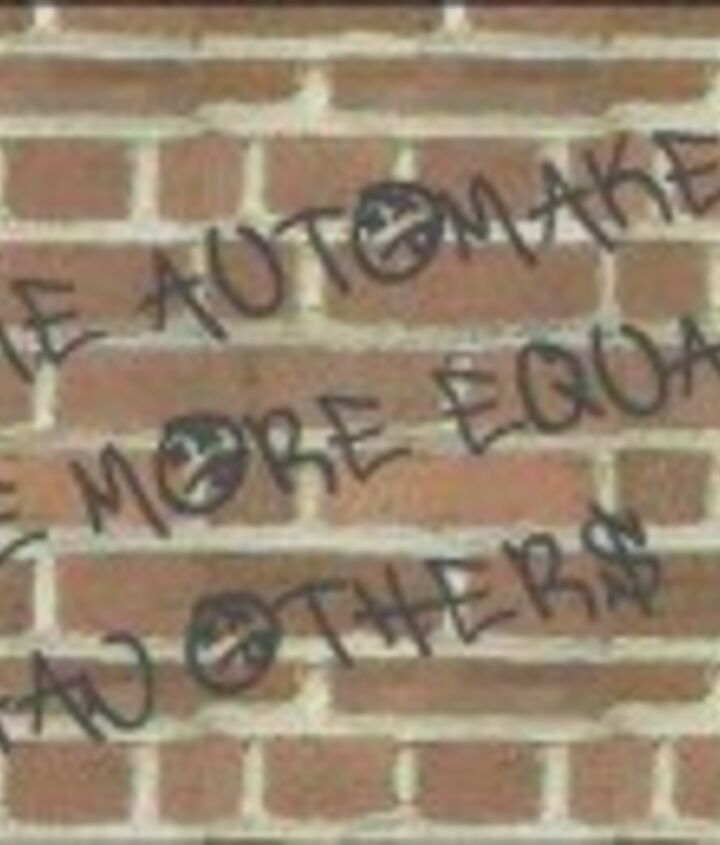 ME AUTOMAKE
E MORE EQUA
HAN OTHER$